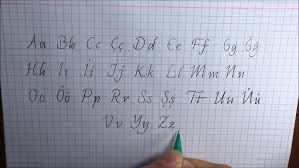 Aa Bb Cc Çç Dd Ee Ff Gg Ğğ
Hh Iı İi Jj Kk Ll Mm Nn
Oo Öö Pp Rr Ss Şş Tt Uu Üü
Vv Yy Zz